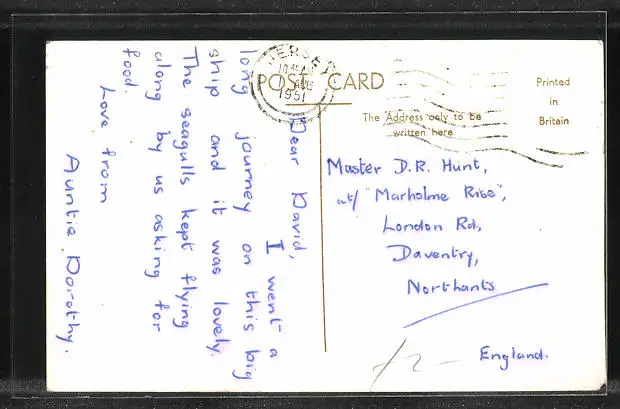 POST CARD
JERSEY
10 45 AM
AUG
1951
Printed
in
Britain
The Address only to be
written here
Dear David,
I went a
long journey on this big
ship and it was lovely.
The seagulls kept flying
along by us asking for
food.
Love from
Auntie Dorothy.
Master D.R. Hunt,
at/ "Marholme Rise",
London Rd,
Daventry,
Northants
England.
/2-